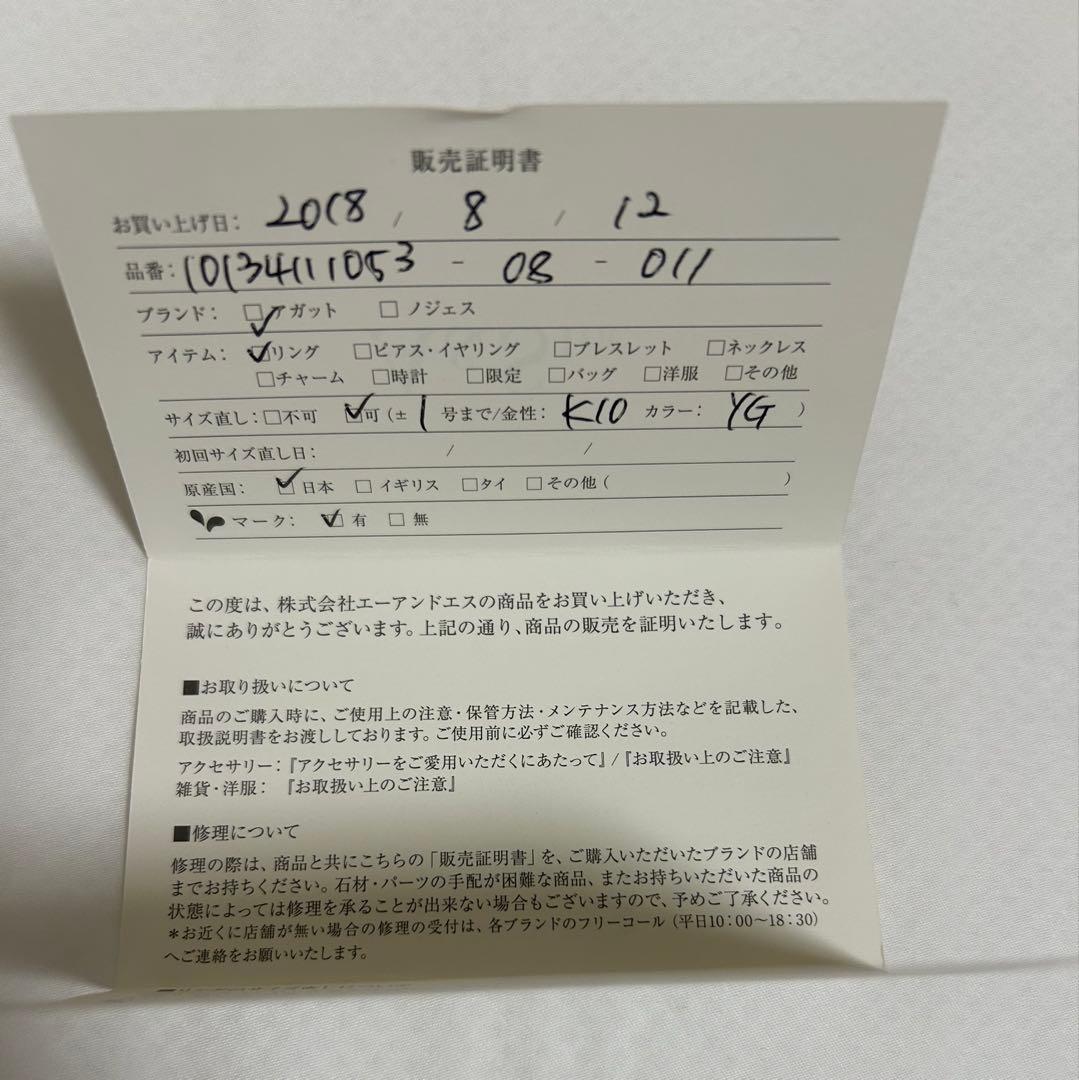 販売証明書
お買い上げ日: 2018 / 8 / 12
品番: 10134111053 - 08 - 011
ブランド: ☑アガット □ノジェス
アイテム: ☑リング □ピアス・イヤリング □ブレスレット □ネックレス
□チャーム □時計 □限定 □バッグ □洋服 □その他
サイズ直し: □不可 ☑可(± 1 号まで/金性: K10 カラー: YG )
初回サイズ直し日: / /
原産国: ☑日本 □イギリス □タイ □その他( )
マーク: ☑有 □無
この度は、株式会社エーアンドエスの商品をお買い上げいただき、
誠にありがとうございます。上記の通り、商品の販売を証明いたします。
■お取り扱いについて
商品のご購入時に、ご使用上の注意・保管方法・メンテナンス方法などを記載した、
取扱説明書をお渡ししております。ご使用前に必ずご確認ください。
アクセサリー:『アクセサリーをご愛用いただくにあたって』/『お取扱い上のご注意』
雑貨・洋服: 『お取扱い上のご注意』
■修理について
修理の際は、商品と共にこちらの「販売証明書」を、ご購入いただいたブランドの店舗
までお持ちください。石材・パーツの手配が困難な商品、またお持ちいただいた商品の
状態によっては修理を承ることが出来ない場合もございますので、予めご了承ください。
*お近くに店舗が無い場合の修理の受付は、各ブランドのフリーコール(平日10:00〜18:30)
へご連絡をお願いいたします。